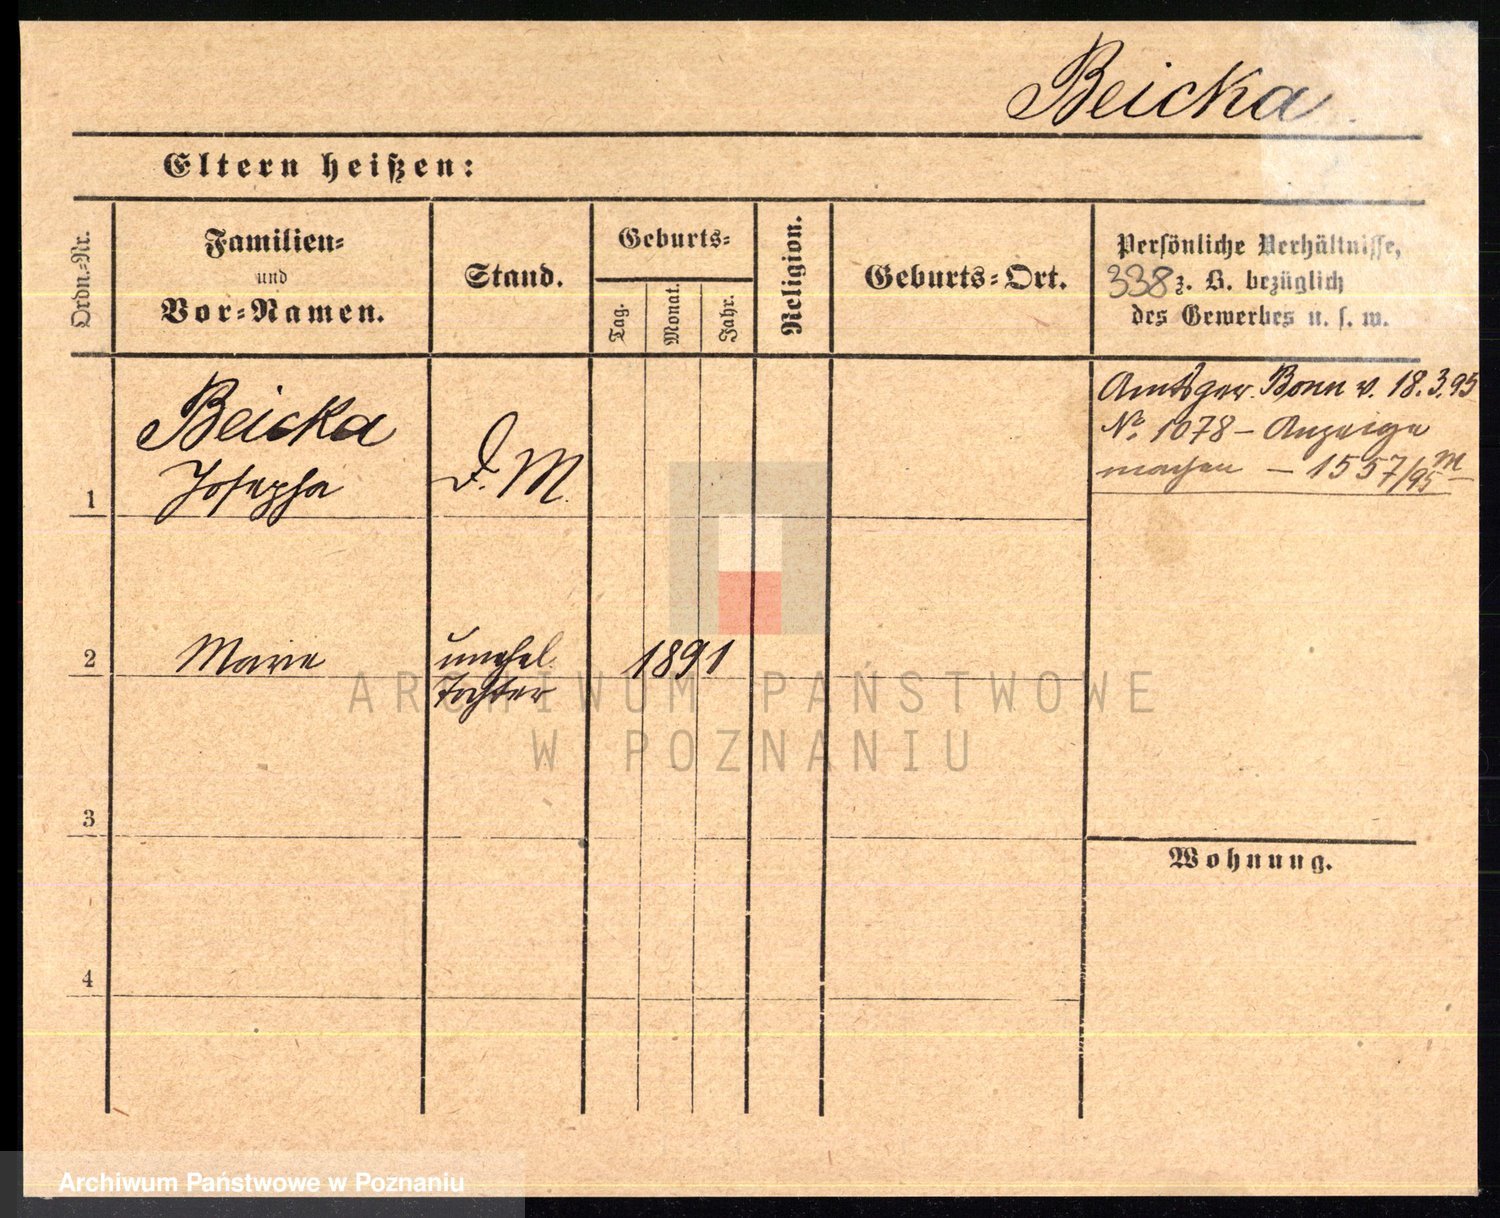 Beicka
Eltern heißen:
Ordn.-Nr.
Familien-
und
Vor-Namen.
Stand.
Geburts-
Tag.
Monat.
Jahr.
Religion.
Geburts-Ort.
Persönliche Verhältnisse,
338 z. B. bezüglich
des Gewerbes u. s. w.
1
Beicka
Josepha
D. M.
Amtsger. Bonn v. 18.3.95
No. 1078 – Anzeige
machen – 1557/95 M
2
Marie
unehel.
Tochter
1891
ARCHIWUM PAŃSTWOWE
W POZNANIU
3
Wohnung.
4
Archiwum Państwowe w Poznaniu